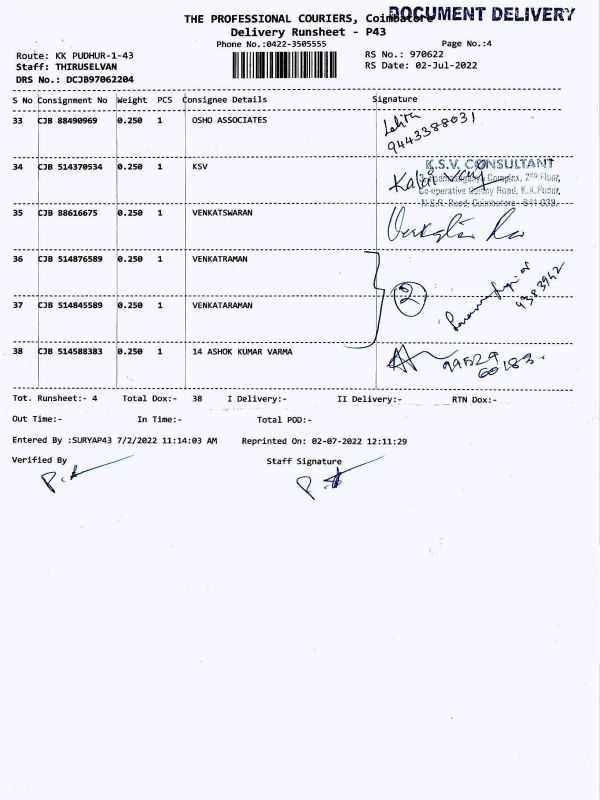 THE PROFESSIONAL COURIERS, Coimbatore
DOCUMENT DELIVERY
Delivery Runsheet - P43
Phone No.:0422-3505555
Page No.:4
Route: KK PUDHUR-1-43
RS No.: 970622
Staff: THIRUSELVAN
RS Date: 02-Jul-2022
DRS No.: DCJB97062204
S No Consignment No Weight PCS Consignee Details Signature
33 CJB 88490969 0.250 1 OSHO ASSOCIATES
Lalith
9443388031
34 CJB 514370534 0.250 1 KSV
K.S.V. CONSULTANT
Complex, 2nd Floor,
Co-operative Colony Road, K.K.Pudur,
N.S.R. Road, Coimbatore - 641 038.
35 CJB 88616675 0.250 1 VENKATSWARAN
36 CJB 514876589 0.250 1 VENKATRAMAN
2
37 CJB 514845589 0.250 1 VENKATARAMAN
38 CJB 514588383 0.250 1 14 ASHOK KUMAR VARMA
99529
60183
Tot. Runsheet:- 4 Total Dox:- 38 I Delivery:- II Delivery:- RTN Dox:-
Out Time:- In Time:- Total POD:-
Entered By :SURYAP43 7/2/2022 11:14:03 AM Reprinted On: 02-07-2022 12:11:29
Verified By Staff Signature